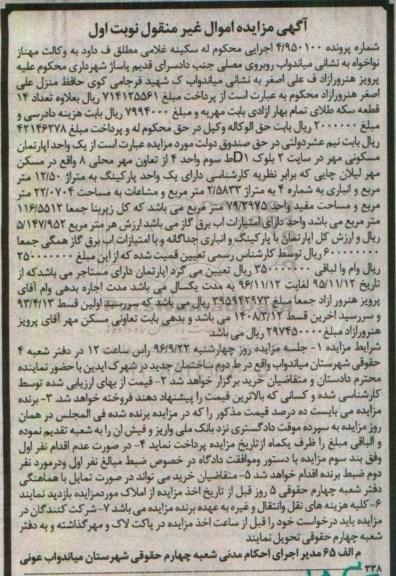 آگهی مزایده اموال غیر منقول نوبت اول
شماره پرونده ۴/۹۵۰۱۰۰ اجرایی محکوم له سکینه غلامی مطلق ف داود به وکالت مهناز
نواخواه به نشانی میاندواب روبروی مصلی جنب دادسرای قدیم پاساژ شهرداری محکوم علیه
پرویز هنرورازاد ف علی اصغر به نشانی میاندواب ک شهید فرجامی کوی حافظ منزل علی
اصغر هنرورازاد محکوم به عبارت است از پرداخت مبلغ ۷۱۴۱۲۵۵۶۱ ریال بعلاوه تعداد ۱۴
قطعه سکه طلای تمام بهار ازادی بابت مهریه و مبلغ ۷۹۹۴۰۰۰ ریال بابت هزینه دادرسی و
مبلغ ۲۰۰۰۰۰۰ ریال بابت حق الوکاله وکیل در حق محکوم له و پرداخت مبلغ ۴۲۱۴۶۳۷۸
ریال بابت نیم عشر دولتی در حق صندوق دولت مورد مزایده عبارت است از یک واحد اپارتمان
مسکونی مهر در سایت ۲ بلوک D۱ ط سوم واحد ۴ از تعاون مهر محلی ۸ واقع در مسکن
مهر لیلان چایی که برابر نظریه کارشناسی دارای یک واحد پارکینگ به متراژ ۱۲/۵۰ متر
مربع و انباری به شماره ۴ به متراژ ۲/۵۸۳۳ متر مربع و مشاعات به مساحت ۲۲/۰۷۰۴ متر
مربع و مساحت مفید واحد ۷۹/۳۹۷۵ متر مربع می باشد که کل زیربنا جمعا ۱۱۶/۵۵۱۲
متر مربع می باشد واحد دارای امتیازات اب برق گاز می باشد ارزش هر متر مربع ۵/۱۴۷/۹۵۲
ریال و ارزش کل اپارتمان با پارکینگ و انباری جداگانه و با امتیازات اب برق گاز همگی جمعا
۶۰۰۰۰۰۰۰۰ ریال توسط کارشناس رسمی تعیین قمیت شده که از این مبلغ ۲۵۰۰۰۰۰۰۰
ریال وام والباقی ۳۵۰۰۰۰۰۰۰ ریال تعیین می گردد اپارتمان دارای مستاجر می باشد که از
تاریخ ۹۵/۱۱/۱۲ لغایت ۹۶/۱۱/۱۲ به مدت یکسال می باشد مدت اجاره بدهی وام آقای
پرویز هنرور ازاد جمعا مبلغ ۳۹۵۹۴۲۹۷۳ ریال می باشد که سررسید اولین قسط ۹۳/۴/۱۳
و سررسید اخرین قسط ۱۴۰۸/۳/۱۳ می باشد و بدهی بابت تعاونی مسکن مهر آقای پرویز
هنرورازاد مبلغ ۲۹۷۴۵۰۰۰۰ ریال می باشد
شرایط مزایده ۱- جلسه مزایده روز چهارشنبه ۹۶/۹/۲۲ راس ساعت ۱۲ در دفتر شعبه ۴
حقوقی شهرستان میاندواب واقع در ط دوم ساختمان جدید در شهرک ایدین با حضور نماینده
محترم دادستان و متقاضیان خرید برگزار خواهد شد ۲- قیمت از بهای ارزیابی شده توسط
کارشناسی شده و کسانی که بالاترین قیمت را پیشنهاد دهند فروخته خواهد شد. ۳- برنده
مزایده می بایست ده درصد قیمت مذکور را که در مزایده برنده شده فی المجلس در همان
روز مزایده به سپرده موقت دادگستری نزد بانک ملی واریز و فیش ان را به شعبه تقدیم نموده
و الباقی مبلغ را ظرف یکماه از تاریخ مزایده پرداخت نماید ۴- در صورت عدم اقدام نفر اول
وفق بند سوم مزایده با دستور وموافقت دادگاه در خصوص ضبط مبالغ نفر اول ودرمورد نفر
دوم ضبط برنده اقدام خواهد شد ۵- متقاضیان خرید می تواند در صورت تمایل با هماهنگی
دفتر شعبه چهارم حقوقی ۵ روز قبل از تاریخ اخذ مزایده از املاک موردمزایده بازدید نمایند
۶- کلیه هزینه های نقل وانتقال و غیره به عهده برنده مزایده می باشد ۷- شرکت کنندگان در
مزایده باید درخواست خود را قبل از ساعت اخذ مزایده در پاکت لاک و مهر گذاشته و به دفتر
شعبه چهارم حقوقی تحویل نمایند
م الف ۶۵ مدیر اجرای احکام مدنی شعبه چهارم حقوقی شهرستان میاندواب عونی
۳۳۸